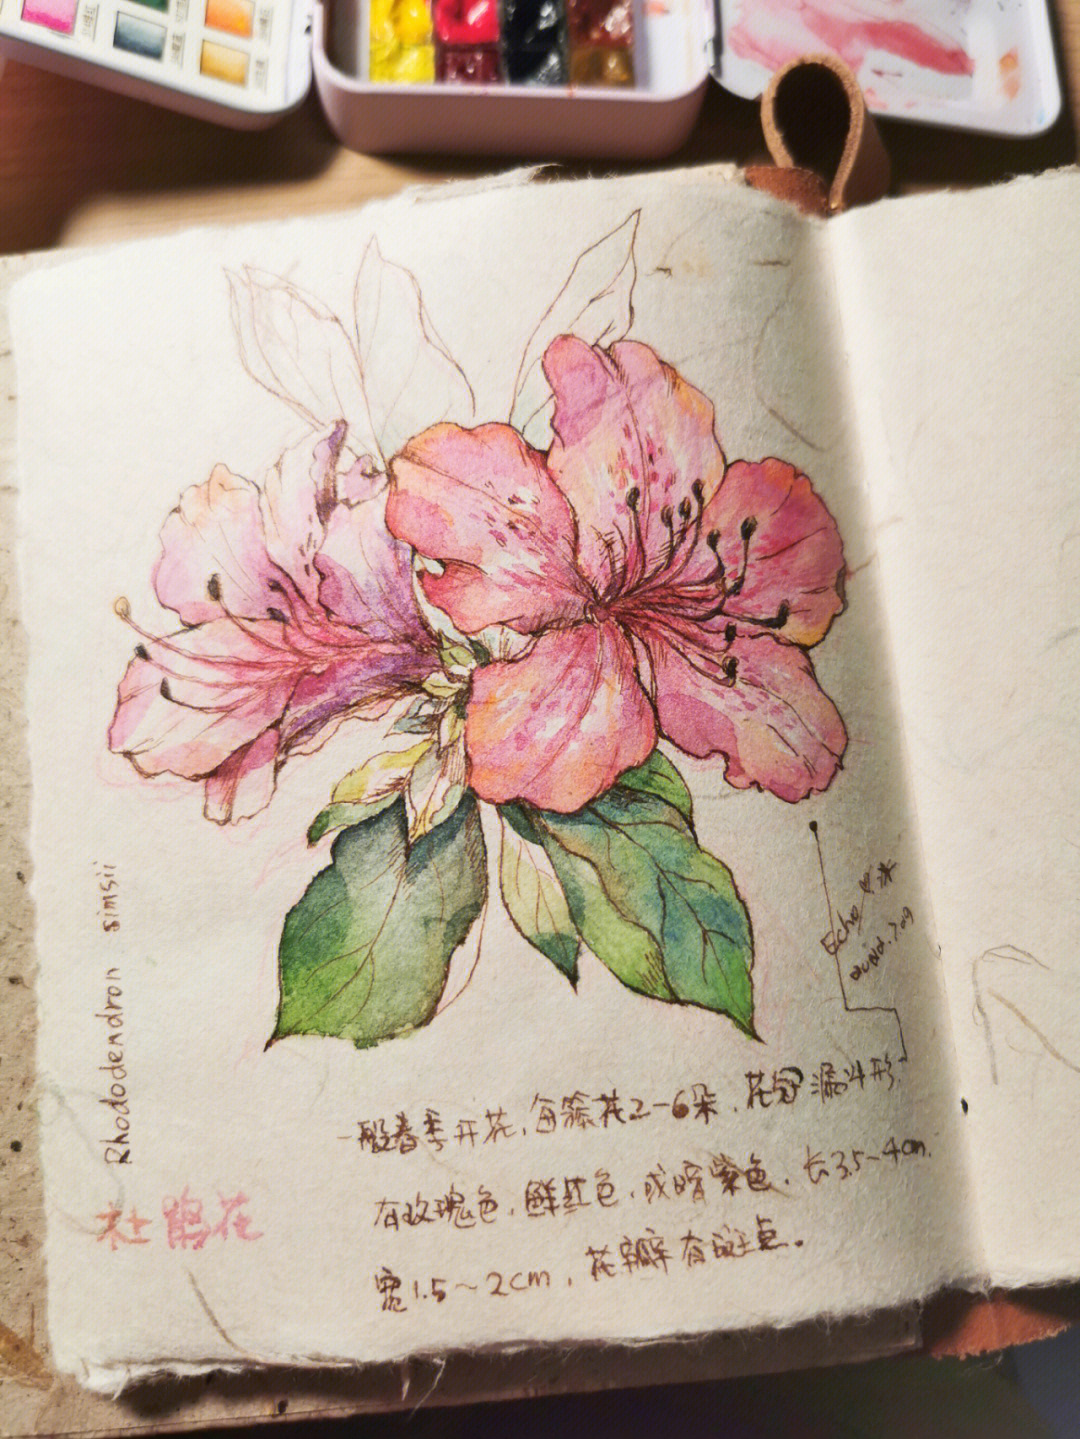 Rhododendron simsii
杜鹃花
Echo
一般春季开花,每簇花2-6朵,花冠漏斗形,
有玫瑰色,鲜红色,或暗紫色,长3.5~4cm,
宽1.5~2cm,花瓣有斑点。